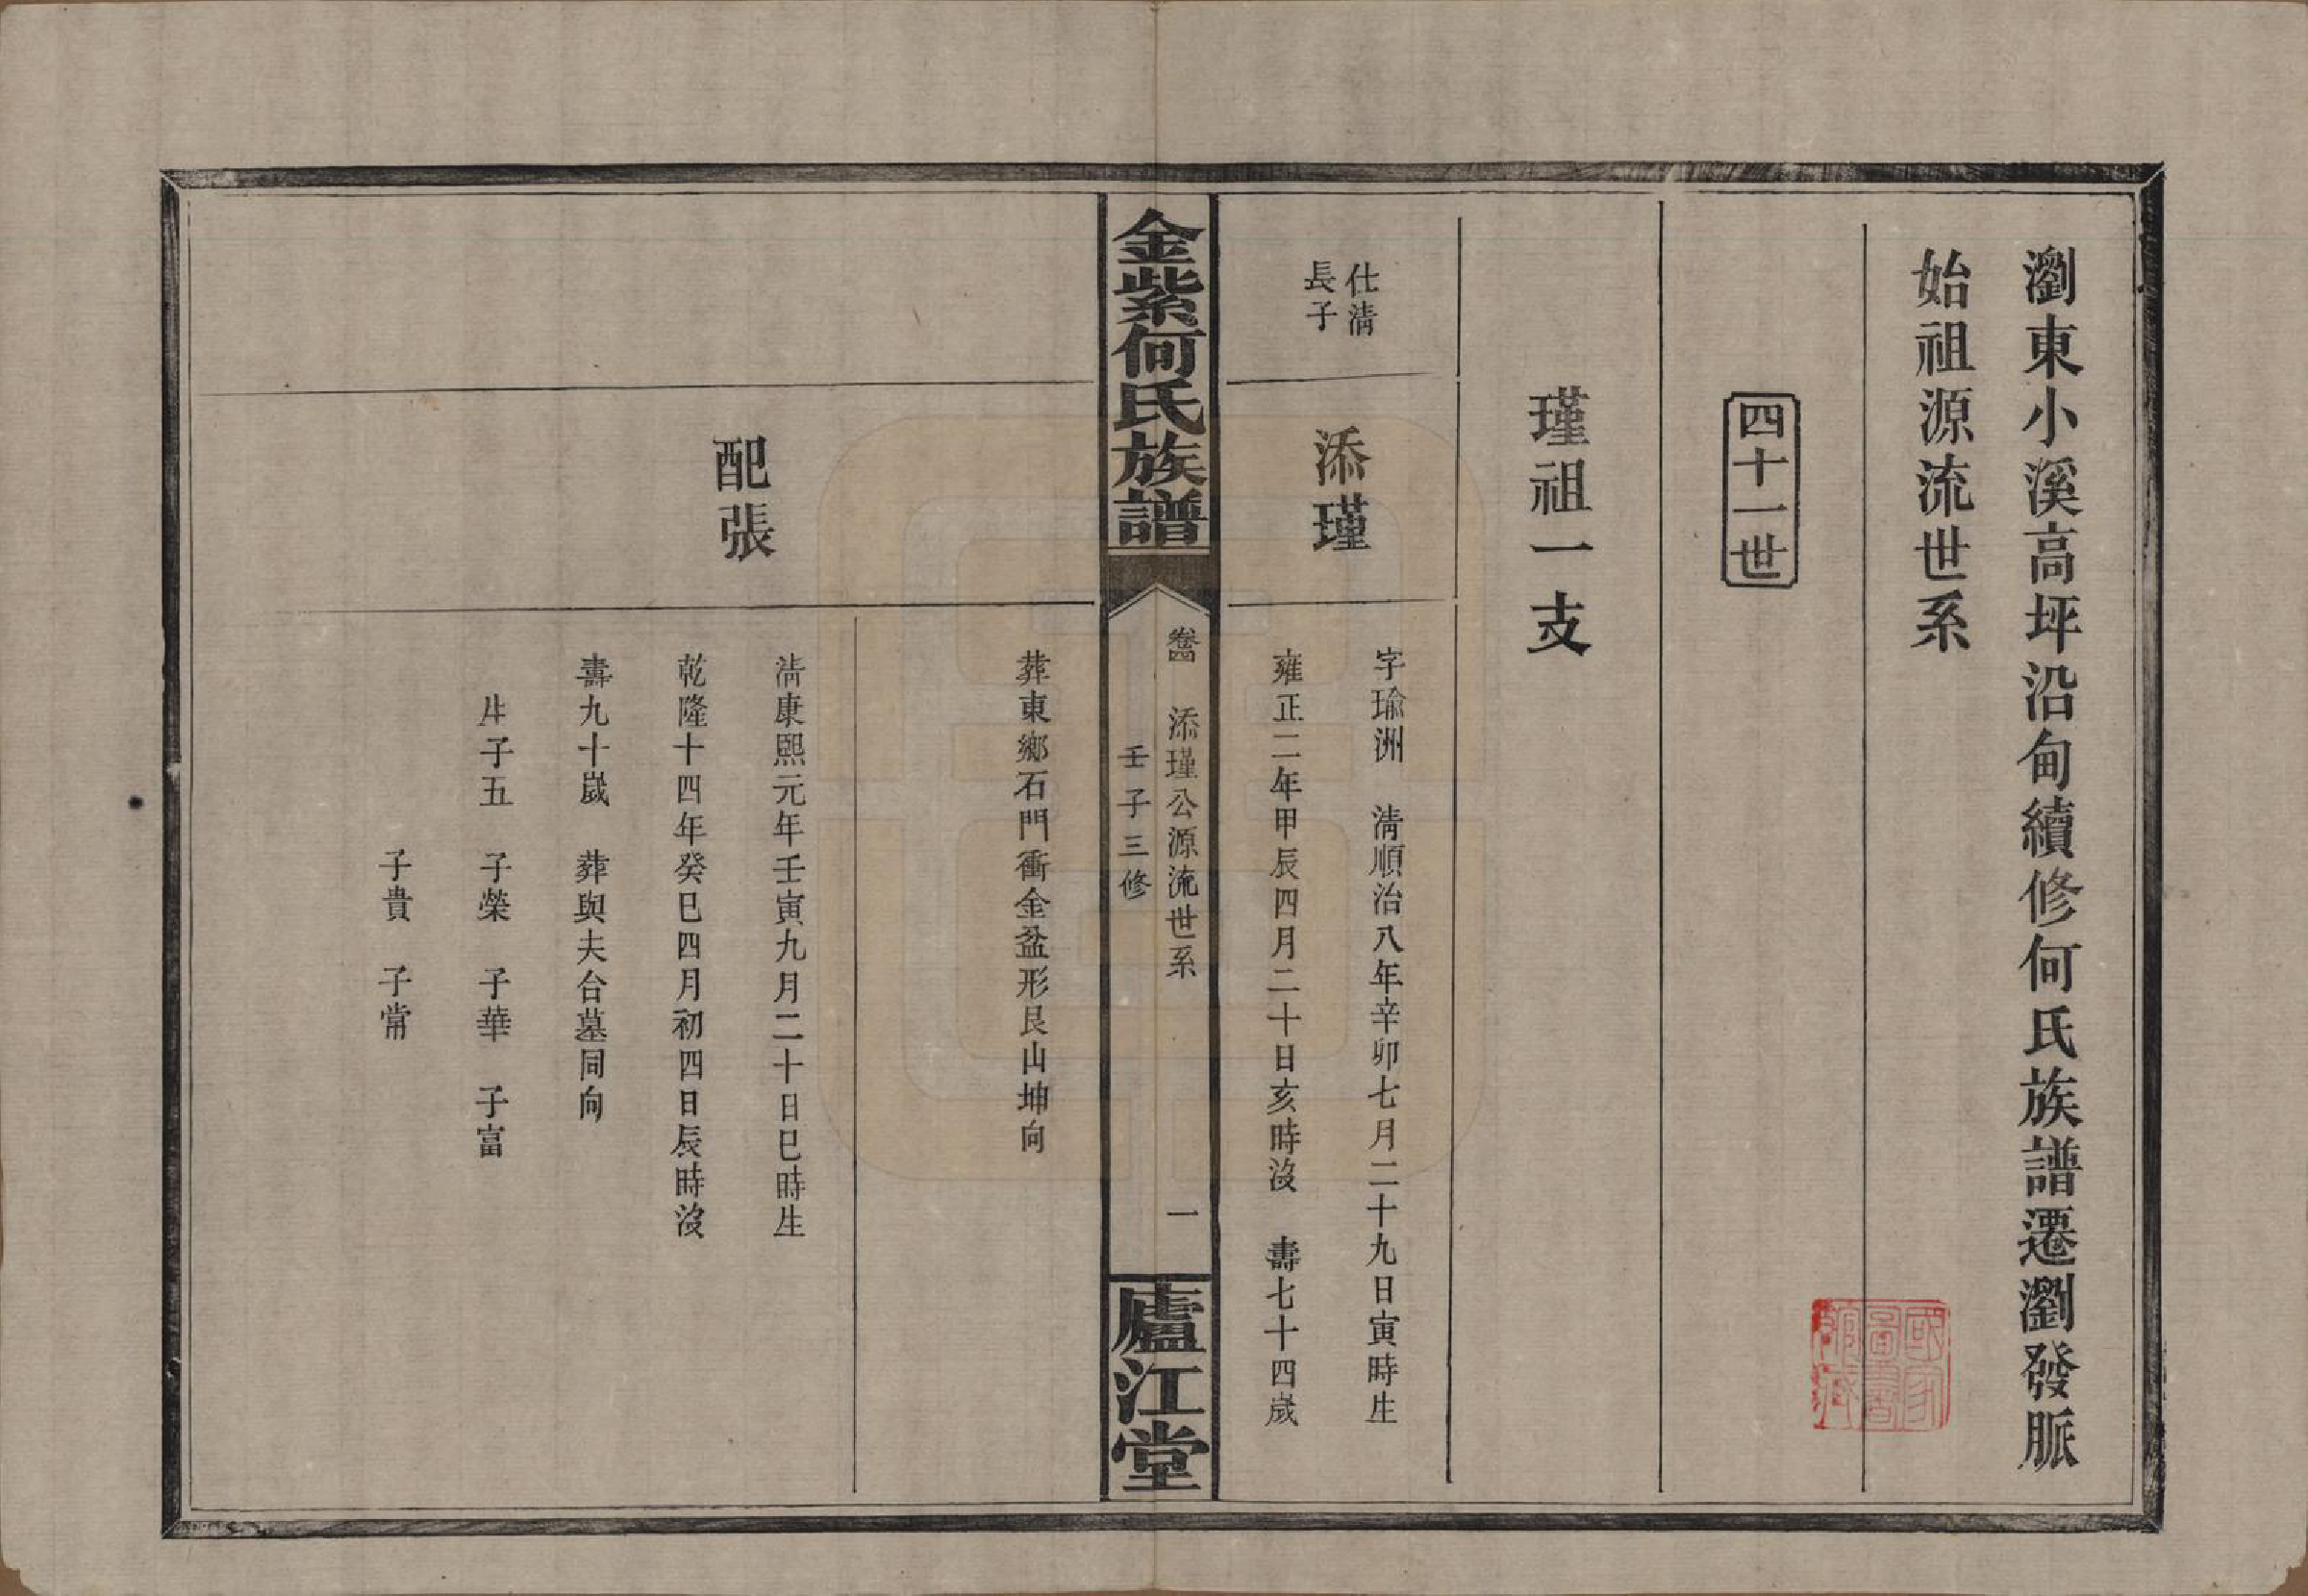 瀏東小溪高坪沿甸續修何氏族譜遷瀏發脈
始祖源流世系
四十一世
瑾祖一支
仕清
長子
添瑾
字瑜洲　清順治八年辛卯七月二十九日寅時生
雍正二年甲辰四月二十日亥時沒　壽七十四歲
金紫何氏族譜
卷四　添瑾公源流世系　一
壬子三修
廬江堂
葬東鄉石門衝金盆形艮山坤向
配張
清康熙元年壬寅九月二十日巳時生
乾隆十四年癸巳四月初四日辰時沒
壽九十歲　葬與夫合墓同向
生子五　子榮　子華　子富
子貴　子常
國家
圖書
館藏